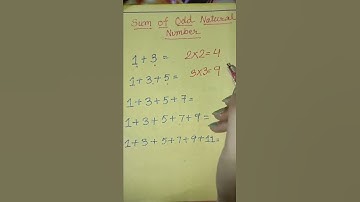 Sum of Odd Natural
Number
1 + 3 = 2×2=4
1 + 3 + 5 = 3×3=9
1 + 3 + 5 + 7 =
1 + 3 + 5 + 7 + 9 =
1 + 3 + 5 + 7 + 9 + 11 =